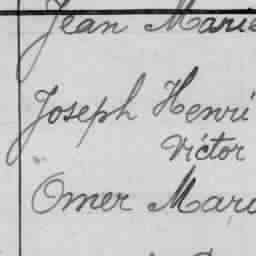 Jean Marie
Joseph Henri
Victor
Omer Mari